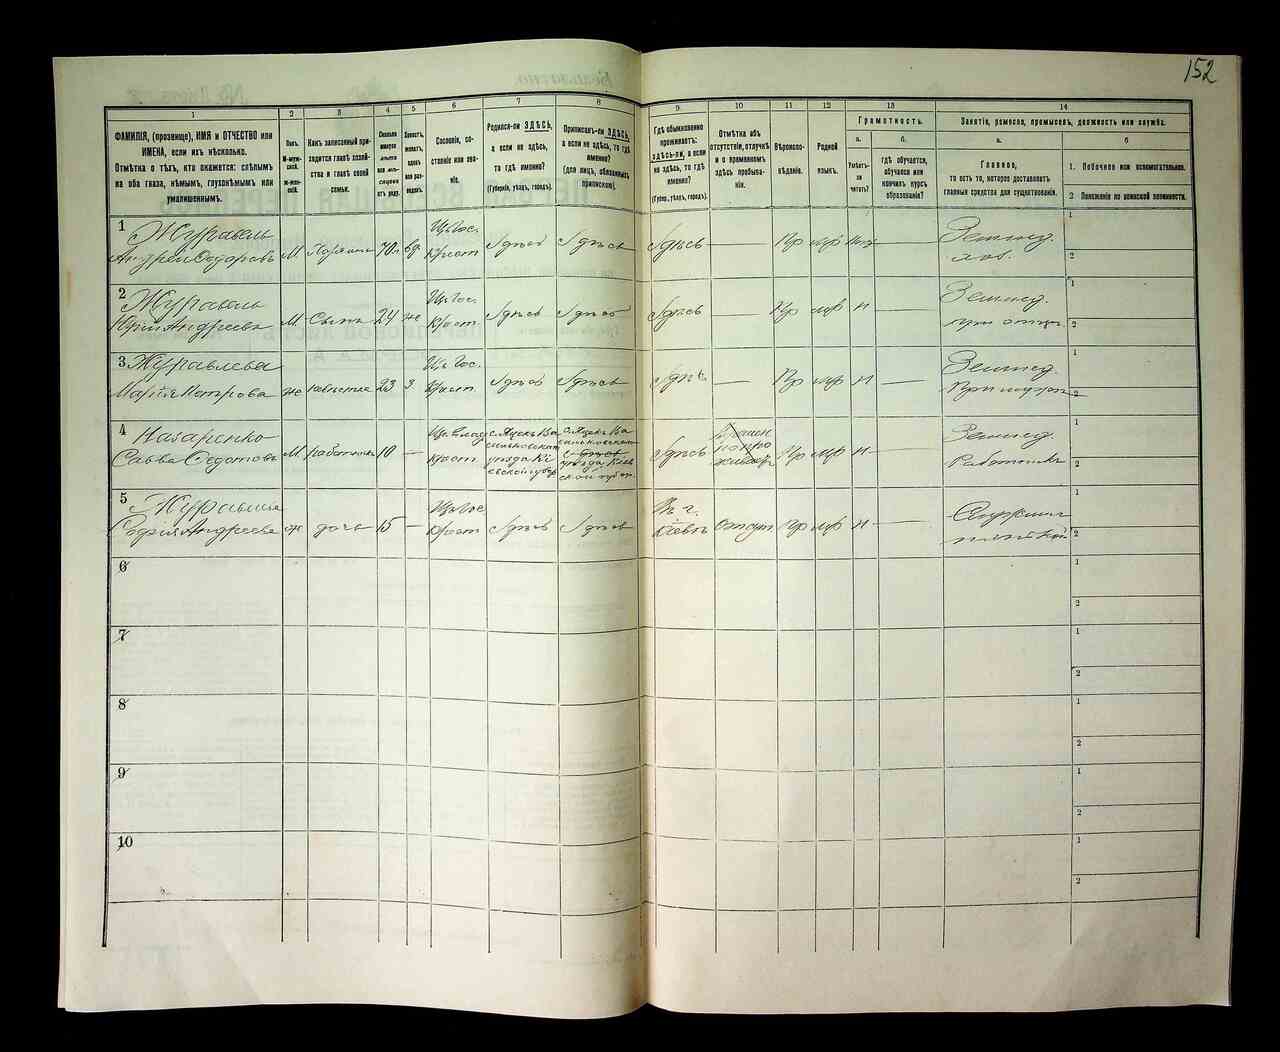 152
1
2
3
4
5
6
7
8
9
10
11
12
13
14
ФАМИЛІЯ, (прозвище), ИМЯ и ОТЧЕСТВО или
ИМЕНА, если ихъ нѣсколько.
Отмѣтка о тѣхъ, кто окажется: слѣпымъ
на оба глаза, нѣмымъ, глухонѣмымъ или
умалишеннымъ.
Полъ.
М-мужской.
Ж-женскій.
Какъ записанный приходится
главѣ хозяйства и главѣ своей
семьи.
Сколько
минуло
лѣтъ
или мѣсяцевъ
отъ роду.
Холостъ,
женатъ,
вдовъ
или разведенъ.
Сословіе, состояніе
или званіе.
Родился-ли ЗДѢСЬ,
а если не здѣсь,
то гдѣ именно?
(Губернія, уѣздъ, городъ).
Приписанъ-ли ЗДѢСЬ,
а если не здѣсь, то гдѣ
именно?
(для лицъ, обязанныхъ
припискою).
Гдѣ обыкновенно
проживаетъ:
ЗДѢСЬ-ли, а если
не здѣсь, то гдѣ
именно?
(Губер., уѣздъ, городъ).
Отмѣтка объ
отсутствіи, отлучкѣ
и о временномъ
здѣсь пребываніи.
Вѣроисповѣданіе.
Родной
языкъ.
Грамотность.
а.
Умѣетъ-ли
читать?
б.
гдѣ обучается,
обучался или
кончилъ курсъ
образованія?
Занятіе, ремесло, промыселъ, должность или служба.
а.
Главное,
то есть то, которое доставляетъ
главныя средства для существованія.
б
1. Побочное или вспомогательное.
2 Положеніе по воинской повинности.
1
Журавель
Андрей Ѳедоровъ
М
70
вд
Крест
Здѣсь
Здѣсь
Здѣсь
Пр
мр
Землед.
1
2
2
Журавель
Юрій Андреевъ
М
Сынъ
24
же
Крест
Здѣсь
Здѣсь
Здѣсь
Пр
мр
н
Землед.
при отцѣ
1
2
3 Журавлева
Марія Петрова
же
невѣстка
23
з
Крест
Здѣсь
Здѣсь
Здѣсь
Пр
мр
н
Землед.
При мужѣ
1
2
4
Назаренко
Савва Ѳедотовъ
М
работникъ
10
Крест
уѣзда Кіевской губер
уѣзда Кіевской губ.
Здѣсь
Пр
мр
н
Землед.
Работникъ
1
2
5
Софія Андреева
ж
дочь
15
Крест
Здѣсь
Здѣсь
Въ г.
Кіевѣ
отсут
Пр
мр
н
1
2
6
1
2
7
1
2
8
1
2
9
1
2
10
1
2